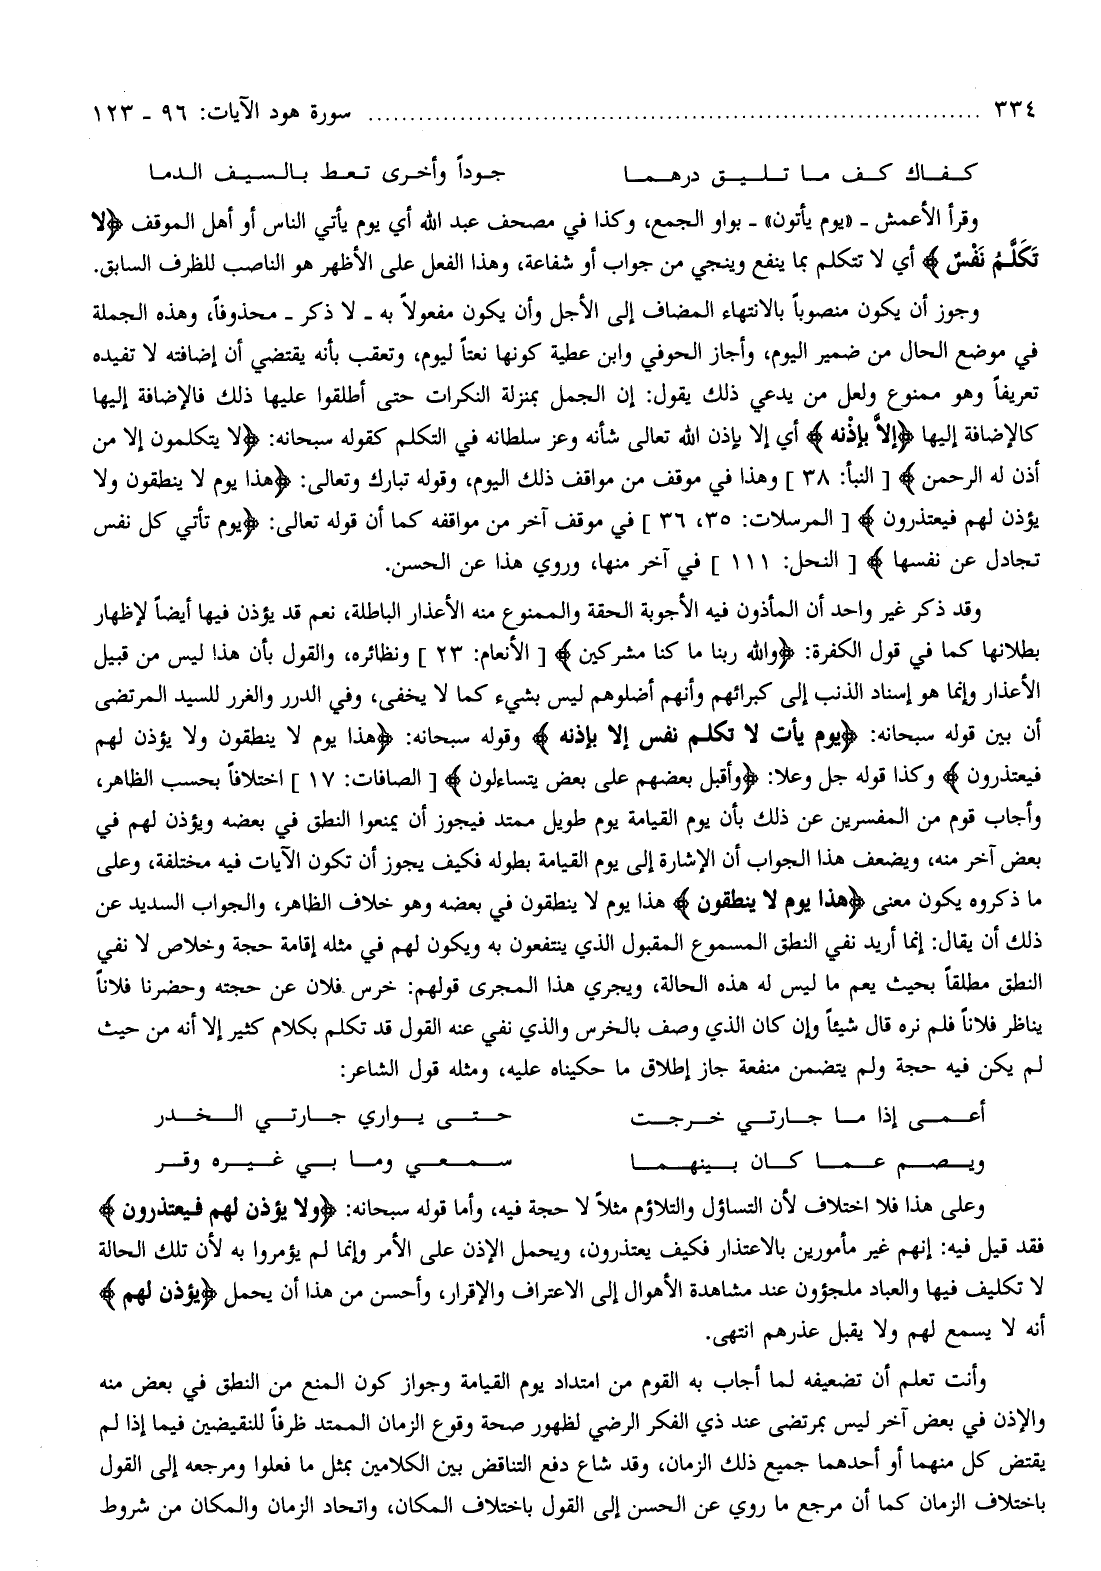 ٣٣٤ ........................................ سورة هود الآيات: ٩٦ ـ ١٢٣
كـفـاك كـف مـا تـلـيـق درهـمـا جـوداً وأخـرى تـعـط بـالـسـيـف الـدمـا
وقرأ الأعمش ـ «يوم يأتون» ـ بواو الجمع، وكذا في مصحف عبد الله أي يوم يأتي الناس أو أهل الموقف ﴿لا
تَكَلَّمُ نَفْسٌ﴾ أي لا تتكلم بما ينفع وينجي من جواب أو شفاعة، وهذا الفعل على الأظهر هو الناصب للظرف السابق.
وجوز أن يكون منصوباً بالانتهاء المضاف إلى الأجل وأن يكون مفعولاً به ـ لا ذكر ـ محذوفاً، وهذه الجملة
في موضع الحال من ضمير اليوم، وأجاز الحوفي وابن عطية كونها نعتاً ليوم، وتعقب بأنه يقتضي أن إضافته لا تفيده
تعريفاً وهو ممنوع ولعل من يدعي ذلك يقول: إن الجمل بمنزلة النكرات حتى أطلقوا عليها ذلك فالإضافة إليها
كالإضافة إليها ﴿إلاَّ بإذْنه﴾ أي إلا بإذن الله تعالى شأنه وعز سلطانه في التكلم كقوله سبحانه: ﴿لا يتكلمون إلا من
أذن له الرحمن﴾ [ النبأ: ٣٨ ] وهذا في موقف من مواقف ذلك اليوم، وقوله تبارك وتعالى: ﴿هذا يوم لا ينطقون ولا
يؤذن لهم فيعتذرون﴾ [ المرسلات: ٣٥، ٣٦ ] في موقف آخر من مواقفه كما أن قوله تعالى: ﴿يوم تأتي كل نفس
تجادل عن نفسها﴾ [ النحل: ١١١ ] في آخر منها، وروي هذا عن الحسن.
وقد ذكر غير واحد أن المأذون فيه الأجوبة الحقة والممنوع منه الأعذار الباطلة، نعم قد يؤذن فيها أيضاً لإظهار
بطلانها كما في قول الكفرة: ﴿والله ربنا ما كنا مشركين﴾ [ الأنعام: ٢٣ ] ونظائره، والقول بأن هذا ليس من قبيل
الأعذار وإنما هو إسناد الذنب إلى كبرائهم وأنهم أضلوهم ليس بشيء كما لا يخفى، وفي الدرر والغرر للسيد المرتضى
أن بين قوله سبحانه: ﴿يوم يأت لا تكلم نفس إلا بإذنه﴾ وقوله سبحانه: ﴿هذا يوم لا ينطقون ولا يؤذن لهم
فيعتذرون﴾ وكذا قوله جل وعلا: ﴿وأقبل بعضهم على بعض يتساءلون﴾ [ الصافات: ١٧ ] اختلافاً بحسب الظاهر،
وأجاب قوم من المفسرين عن ذلك بأن يوم القيامة يوم طويل ممتد فيجوز أن يمنعوا النطق في بعضه ويؤذن لهم في
بعض آخر منه، ويضعف هذا الجواب أن الإشارة إلى يوم القيامة بطوله فكيف يجوز أن تكون الآيات فيه مختلفة، وعلى
ما ذكروه يكون معنى ﴿هذا يوم لا ينطقون﴾ هذا يوم لا ينطقون في بعضه وهو خلاف الظاهر، والجواب السديد عن
ذلك أن يقال: إنما أريد نفي النطق المسموع المقبول الذي ينتفعون به ويكون لهم في مثله إقامة حجة وخلاص لا نفي
النطق مطلقاً بحيث يعم ما ليس له هذه الحالة، ويجري هذا المجرى قولهم: خرس فلان عن حجته وحضرنا فلاناً
يناظر فلاناً فلم نره قال شيئاً وإن كان الذي وصف بالخرس والذي نفي عنه القول قد تكلم بكلام كثير إلا أنه من حيث
لم يكن فيه حجة ولم يتضمن منفعة جاز إطلاق ما حكيناه عليه، ومثله قول الشاعر:
أعـمـى إذا مـا جـارتـي خـرجـت حـتـى يـواري جـارتـي الـخـدر
ويـصـم عـمـا كـان بـيـنـهـمـا سـمـعـي ومـا بـي غـيـره وقـر
وعلى هذا فلا اختلاف لأن التساؤل والتلاؤم مثلاً لا حجة فيه، وأما قوله سبحانه: ﴿ولا يؤذن لهم فيعتذرون﴾
فقد قيل فيه: إنهم غير مأمورين بالاعتذار فكيف يعتذرون، ويحمل الإذن على الأمر وإنما لم يؤمروا به لأن تلك الحالة
لا تكليف فيها والعباد ملجؤون عند مشاهدة الأهوال إلى الاعتراف والإقرار، وأحسن من هذا أن يحمل ﴿يؤذن لهم﴾
أنه لا يسمع لهم ولا يقبل عذرهم انتهى.
وأنت تعلم أن تضعيفه لما أجاب به القوم من امتداد يوم القيامة وجواز كون المنع من النطق في بعض منه
والإذن في بعض آخر ليس بمرتضى عند ذي الفكر الرضي لظهور صحة وقوع الزمان الممتد ظرفاً للنقيضين فيما إذا لم
يقتض كل منهما أو أحدهما جميع ذلك الزمان، وقد شاع دفع التناقض بين الكلامين بمثل ما فعلوا ومرجعه إلى القول
باختلاف الزمان كما أن مرجع ما روي عن الحسن إلى القول باختلاف المكان، واتحاد الزمان والمكان من شروط